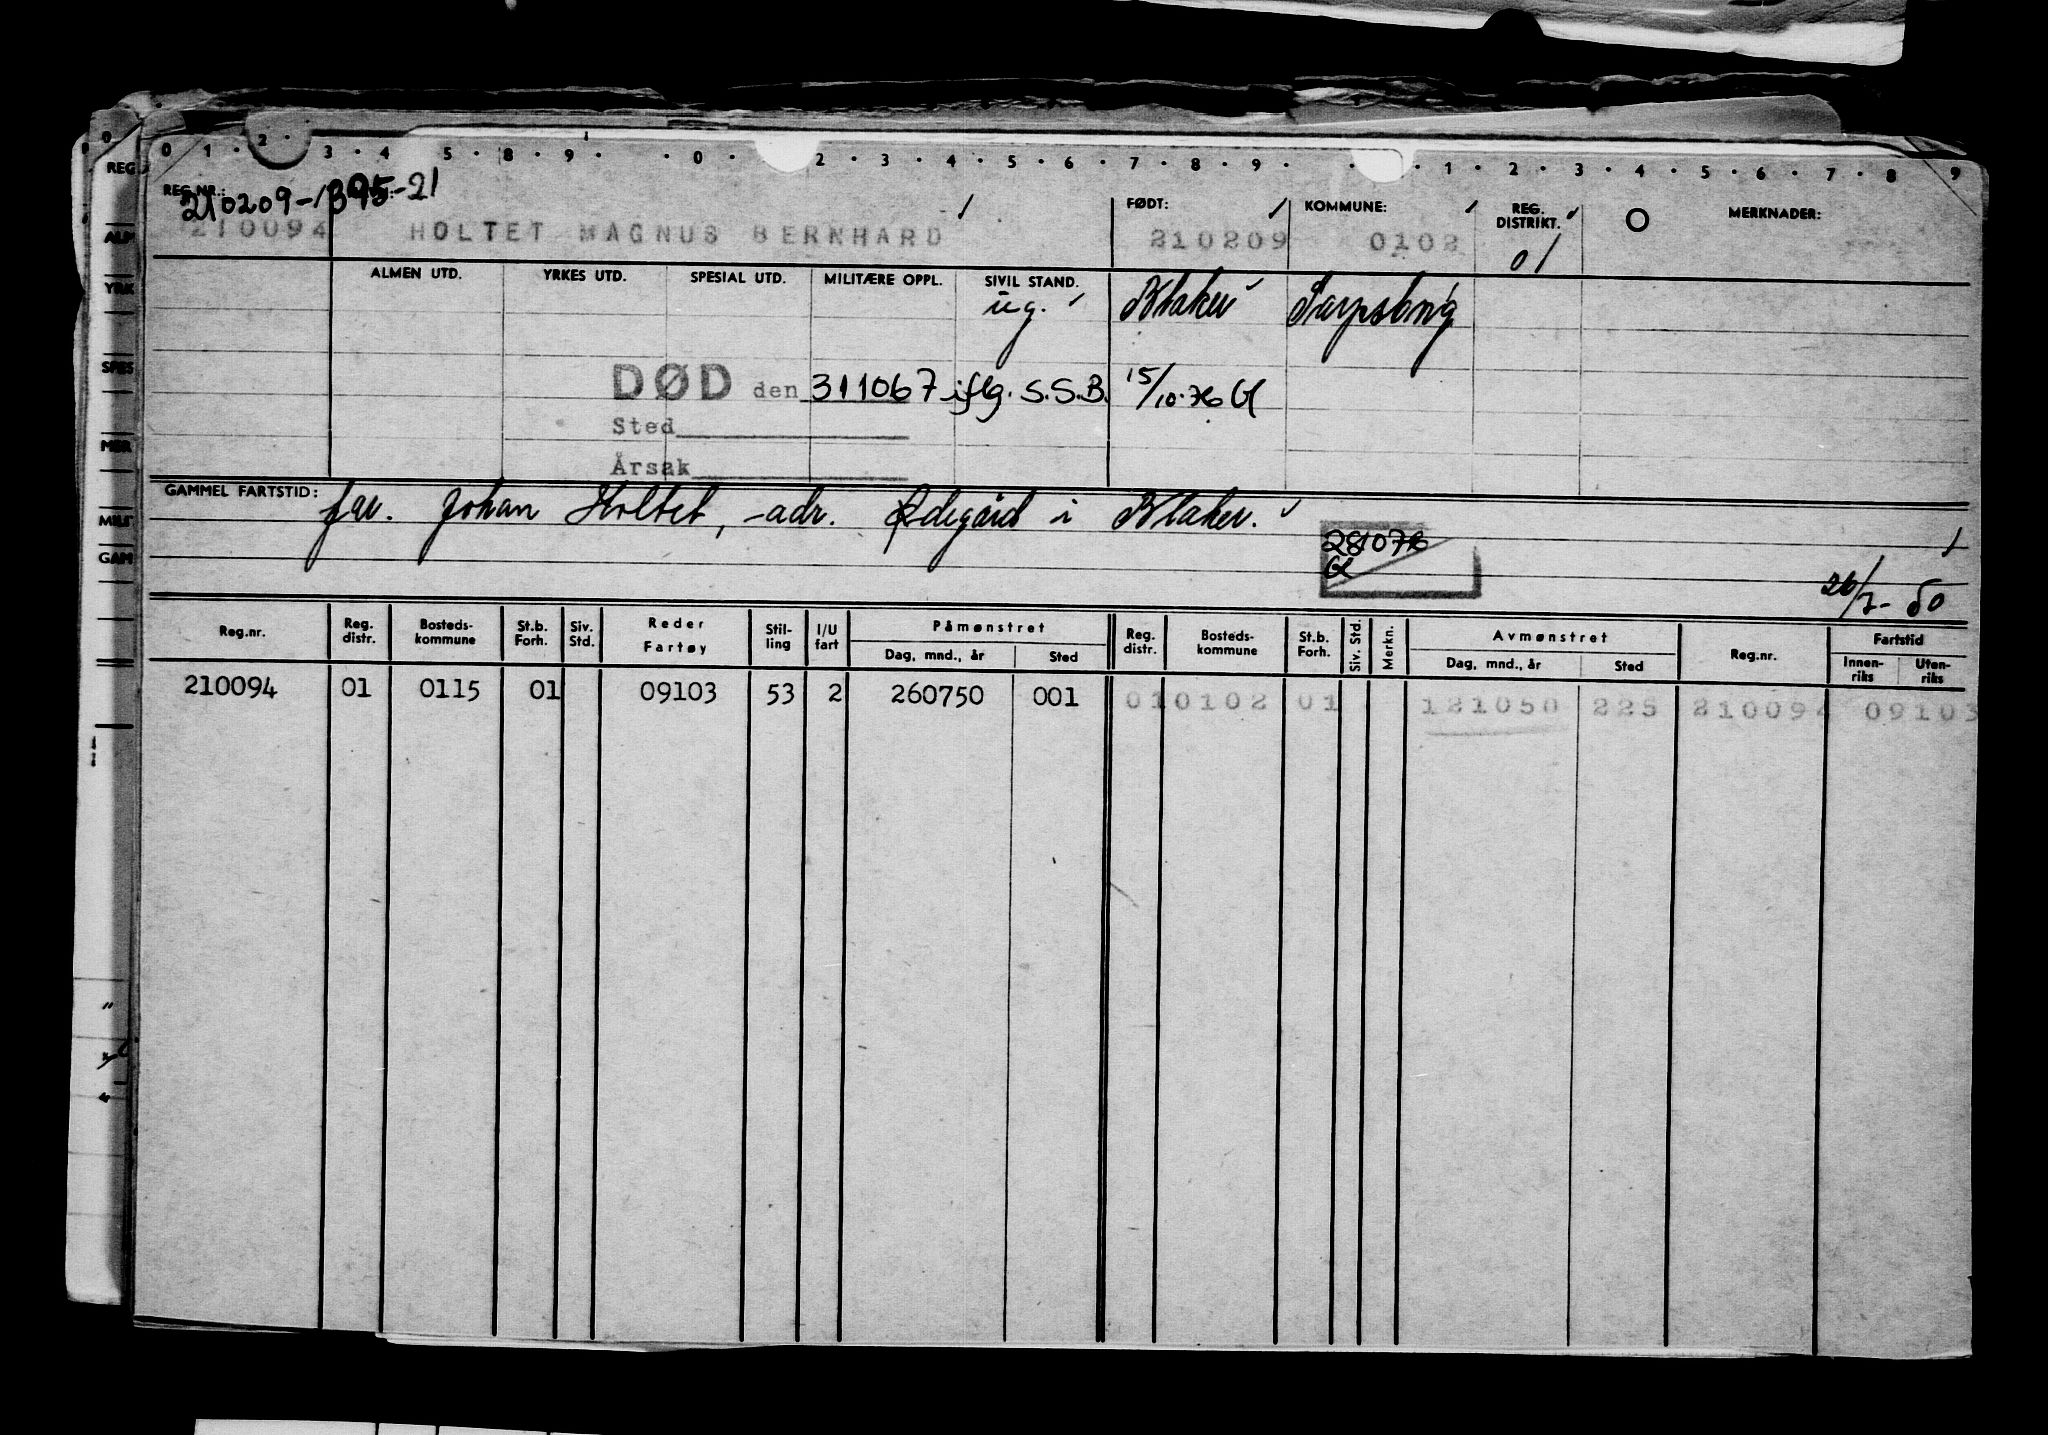 0 1 · 2 · 3 · 4 5 · 8 · 9 · · 0 · 2 · 3 · 4 · 5 · 6 · 7 · 8 · 9 · · 1 · 2 · 3 · 4 · 5 · 6 · 7 · 8 9
REG.NR.: 210209-1395-21
FØDT: KOMMUNE: REG. DISTRIKT. O MERKNADER:
210094 HOLTET MAGNUS BERNHARD 210209 0102 01
ALMEN UTD. YRKES UTD. SPESIAL UTD. MILITÆRE OPPL. SIVIL STAND.
ug. Blaker Sarpsborg
DØD den 311067 iflg. S.S.B. 15/10.76 Gl
Sted
Årsak
GAMMEL FARTSTID: far. Johan Holtet, - adr. Ødegård i Blaker.
281076
Gl
26/7-50
Reg.nr. Reg. distr. Bosteds-kommune St.b. Forh. Siv. Std. Reder Fartøy Stil-ling I/U fart Påmønstret Dag, mnd., år Sted Reg. distr. Bosteds-kommune St.b. Forh. Siv. Std. Merkn. Avmønstret Dag, mnd., år Sted Reg.nr. Fartstid Innen-riks Uten-riks
210094 01 0115 01 09103 53 2 260750 001 01 0102 01 121050 225 210094 09103
REG
ALM
YRK
SPES
MER
MILIT
GAM